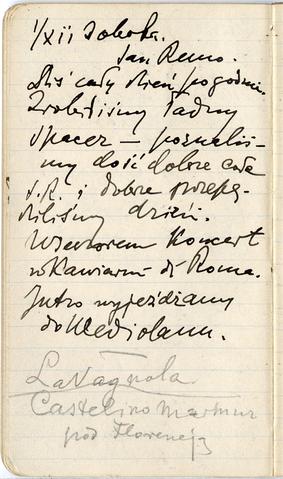 1/XII Sobota.
San Remo.
Dziś cały dzień pogodnie.
Zrobiliśmy ładny
spacer – poznaliś-
my dość dobrze całe
S.R. i dobrze przepę-
dziliśmy dzień.
Wieczorem Koncert
w Kawiarni di Roma.
Jutro wyjeżdżamy
do Mediolanu.
La Vagnola
Castelino Marmur
pod Florencją